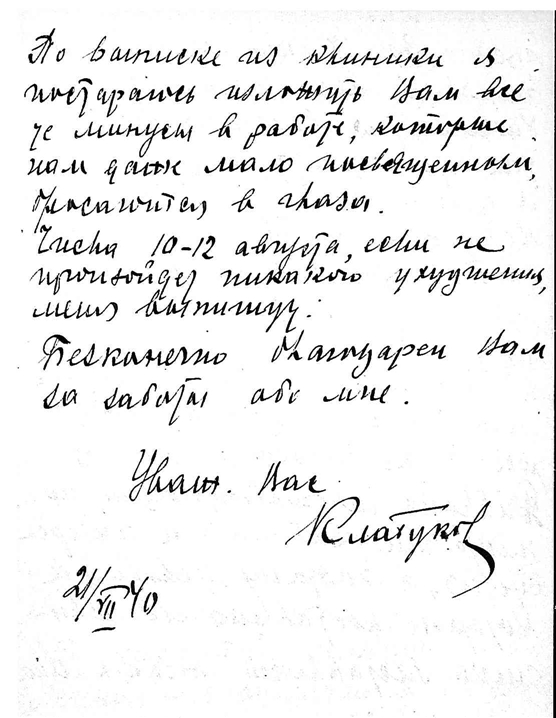 По выписке из клиники я
постараюсь изложить Вам все
те минусы в работе, которые
нам даже мало посвященным,
бросаются в глаза.
Числа 10-12 августа, если не
произойдет никакого ухудшения,
меня выпишут.
Безконечно благодарен Вам
за заботы обо мне.
Уваж. Вас
Клабуков
21/VII 40